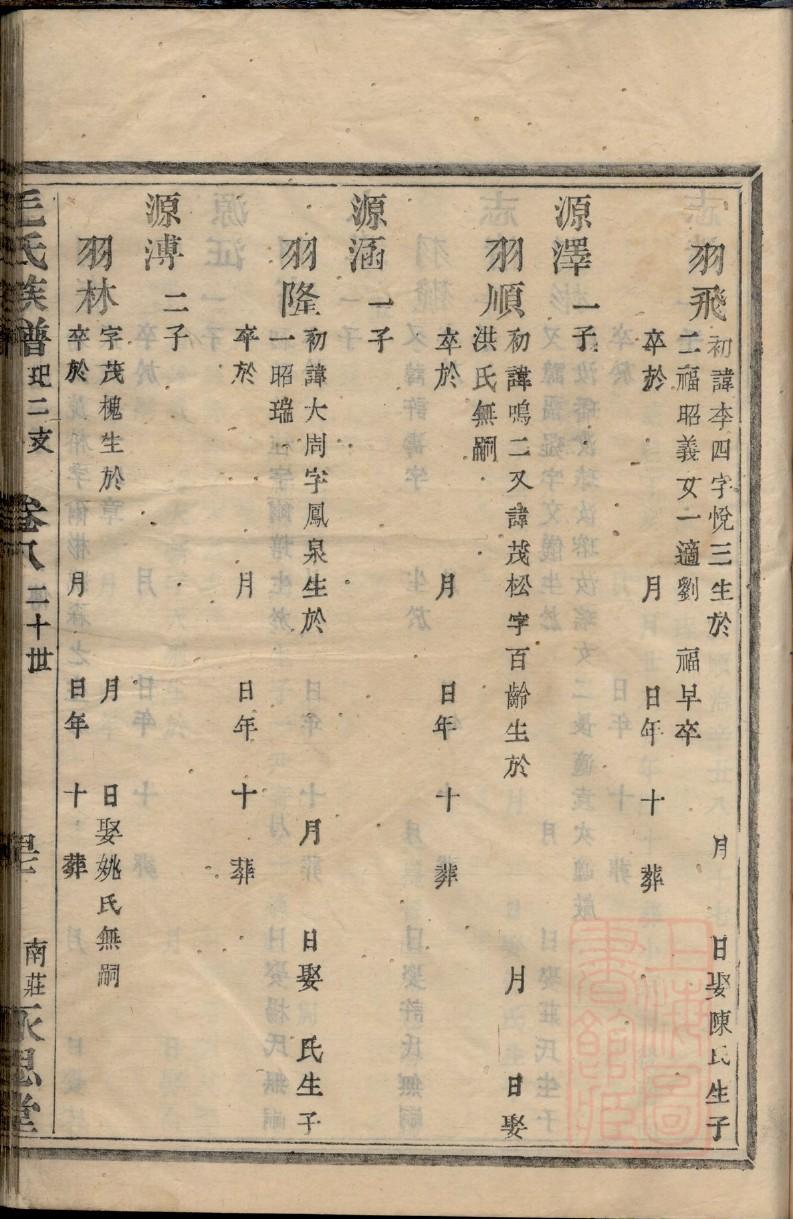 羽飛 初諱李四字悅三生於 月 日娶陳氏生子
二福昭義女一適劉 福早卒
卒於 月 日年 十 葬
源澤 一子
羽順 初諱鳴二又諱茂松字百齡生於 月 日娶
洪氏無嗣
卒於 月 日年 十 葬
源涵 一子
羽隆 初諱大周字鳳泉生於 月 日娶 氏生子
一昭瑞
卒於 月 日年 十 葬
源溥 二子
羽林 字茂槐生於 月 日娶姚氏無嗣
卒於 月 日年 十 葬
毛氏族譜 二支 卷八 二十世 南莊 永思堂
上海圖書館藏